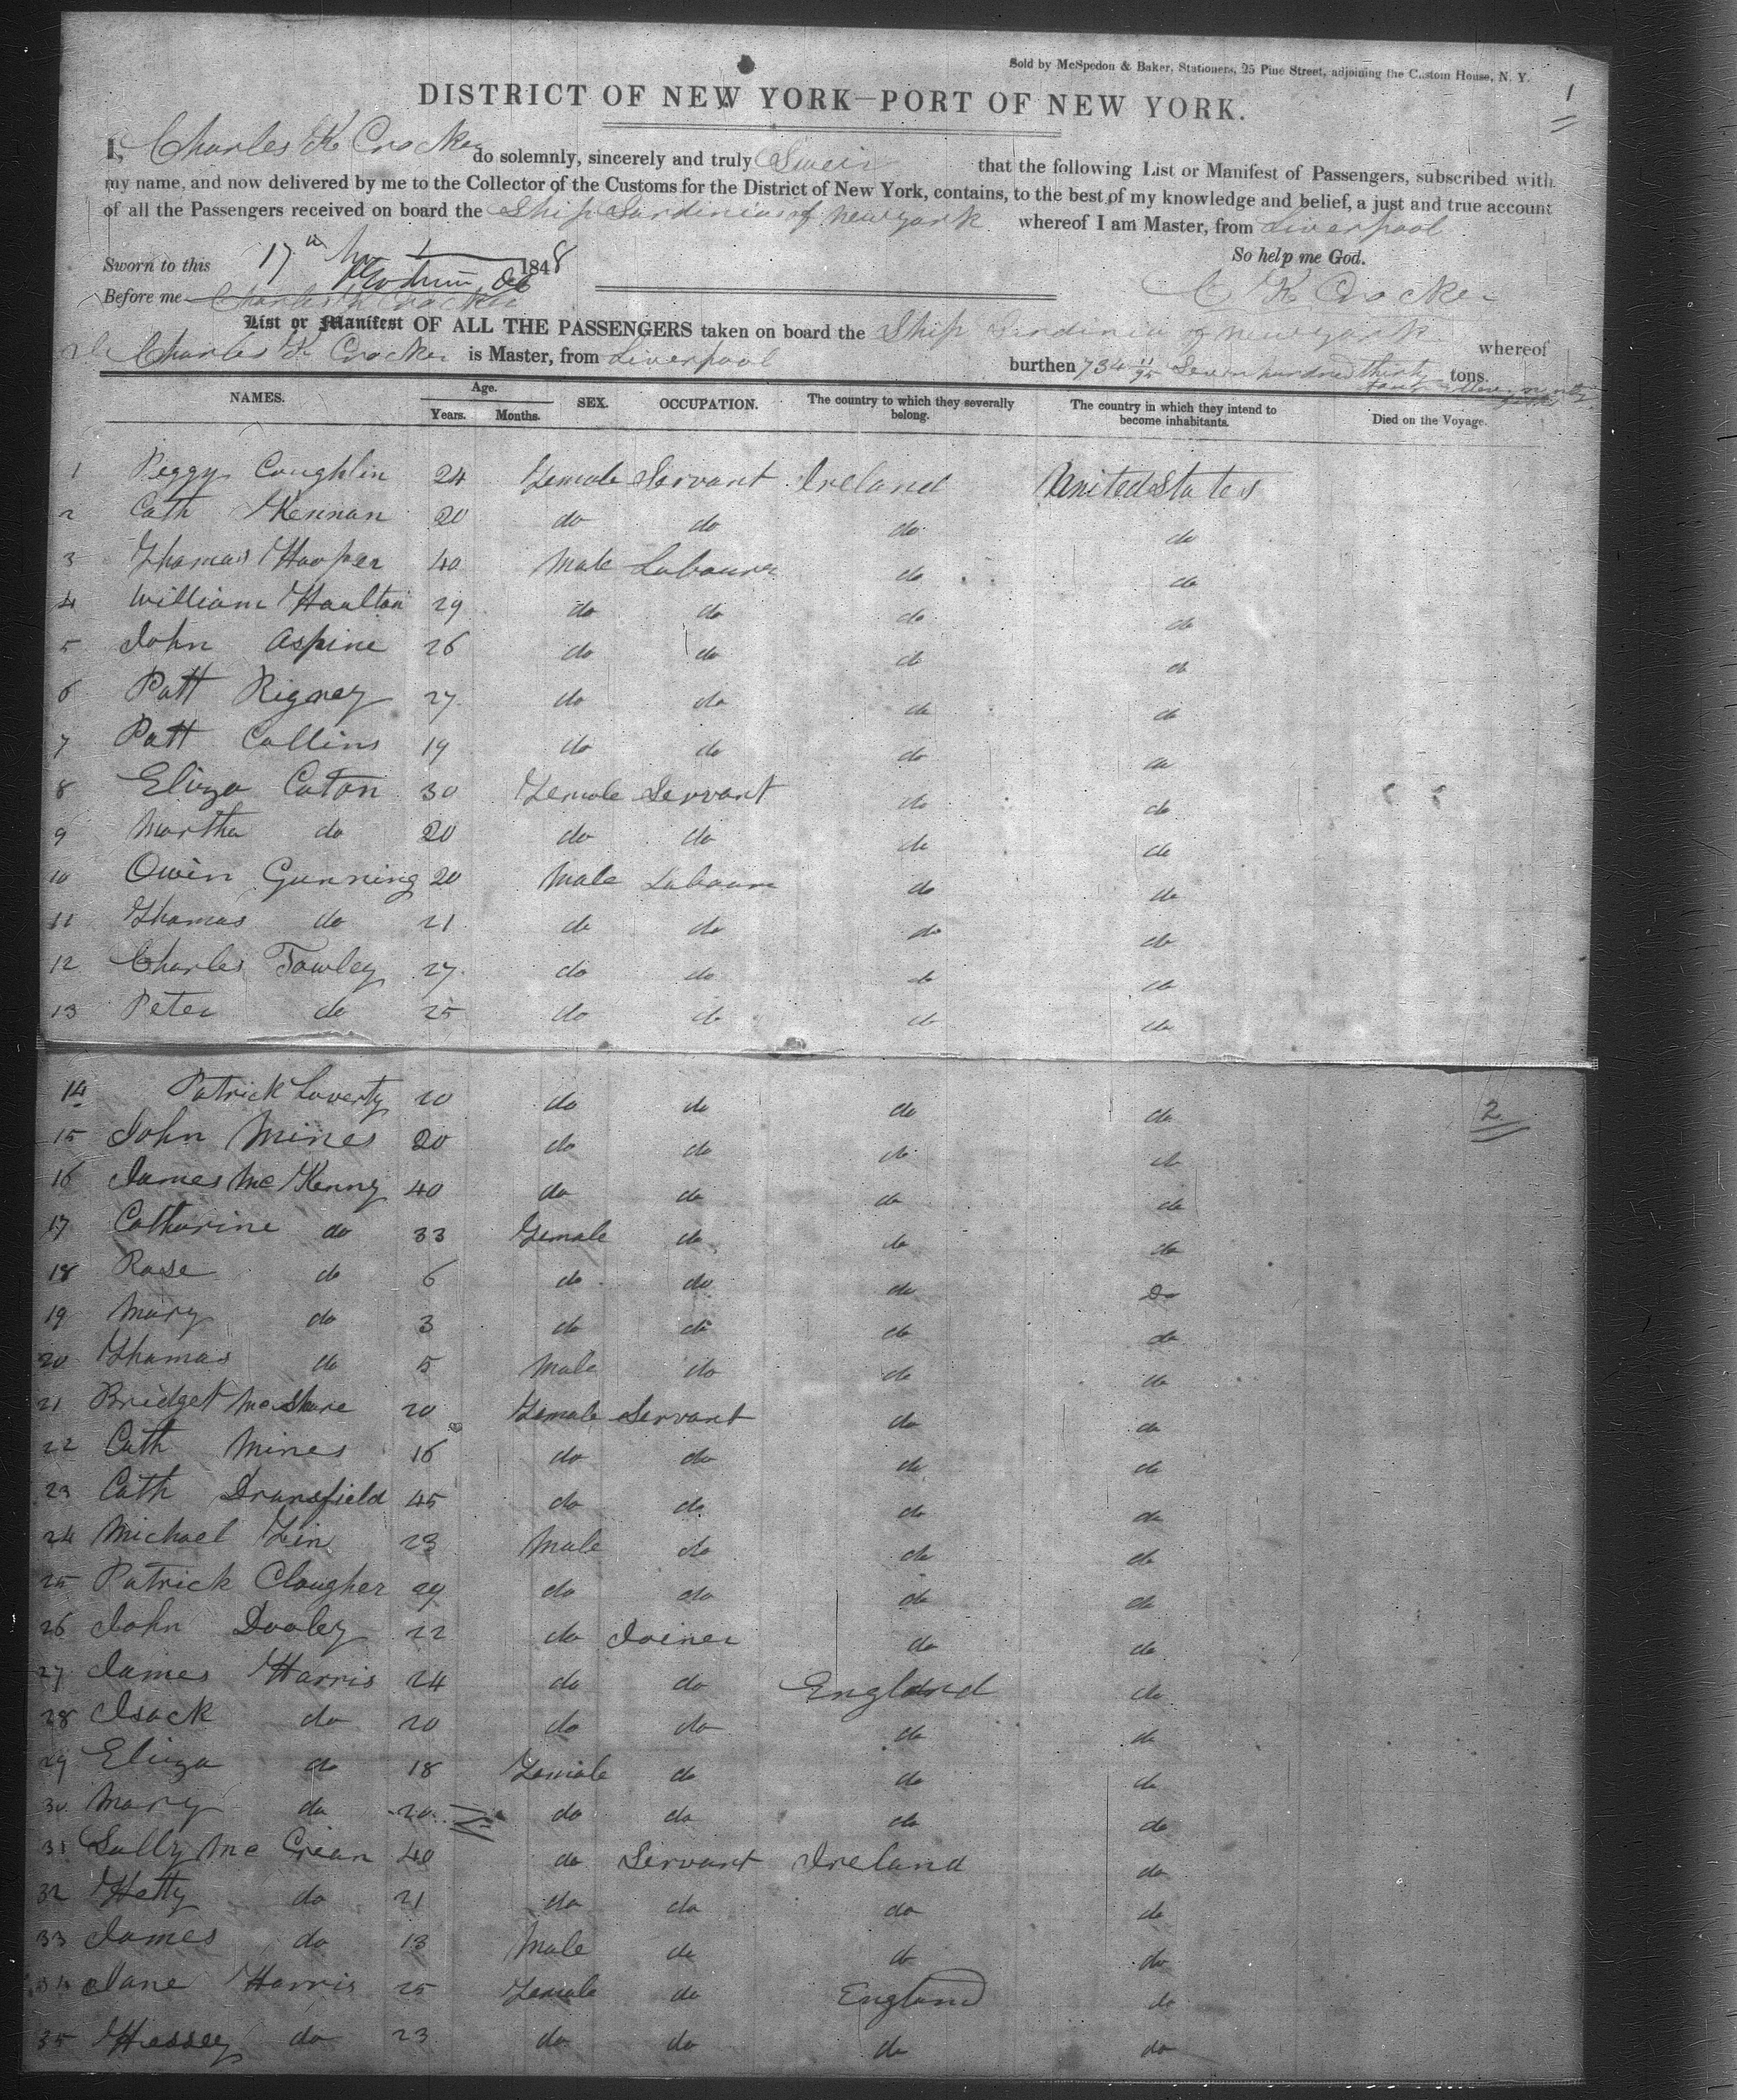 Sold by McSpedon & Baker, Stationers, 25 Pine Street, adjoining the Custom House, N. Y.
1
DISTRICT OF NEW YORK—PORT OF NEW YORK.
I, Charles K Crocker do solemnly, sincerely and truly Swear that the following List or Manifest of Passengers, subscribed with
my name, and now delivered by me to the Collector of the Customs for the District of New York, contains, to the best of my knowledge and belief, a just and true account
of all the Passengers received on board the Ship Sardinia of New york whereof I am Master, from Liverpool
Sworn to this 17th 1848 So help me God.
Before me Charles K Crocker C K Crocker
List or Manifest OF ALL THE PASSENGERS taken on board the Ship Sardinia of New york whereof
Charles K Crocker is Master, from Liverpool burthen 734 11/95 Seven hundred thirty four tons.
NAMES. Age. Years. Months. SEX. OCCUPATION. The country to which they severally belong. The country in which they intend to become inhabitants. Died on the Voyage.
1 Peggy Coughlin 24 Female Servant Ireland United States
2 Cath Kennan 20 do do do do
3 Thomas Hooper 40 Male Labourer do do
4 William Haulton 29 do do do do
5 John Aspine 26 do do do do
6 Patt Rigney 27 do do do do
7 Patt Collins 19 do do do do
8 Eliza Caton 30 Female Servant do do
9 Martha do 20 do do do do
10 Owen Gunning 20 Male Labourer do do
11 Thomas do 21 do do do do
12 Charles Towley 27 do do do do
13 Peter do 25 do do do do
2
14 Patrick Laverty 20 do do do do
15 John Mines 20 do do do do
16 James McKenny 40 do do do do
17 Catharine do 33 Female do do do
18 Rose do 6 do do do Do
19 Mary do 3 do do do do
20 Thomas do 5 Male do do do
21 Bridget 20 Female Servant do do
22 Cath Mines 16 do do do do
23 Cath Dransfield 45 do do do do
24 Michael 23 Male do do do
25 Patrick Clougher 29 do do do do
26 John Dooley 22 do Joiner do do
27 James Harris 24 do do England do
28 Isack do 20 do do do do
29 Eliza do 18 Female do do do
30 Mary do 20 do do do do
31 Sally Mc Crean 40 do Servant Ireland do
32 Hetty do 21 do do do do
33 James do 13 Male do do do
34 Jane Harris 25 Female do England do
35 Hessey do 23 do do do do